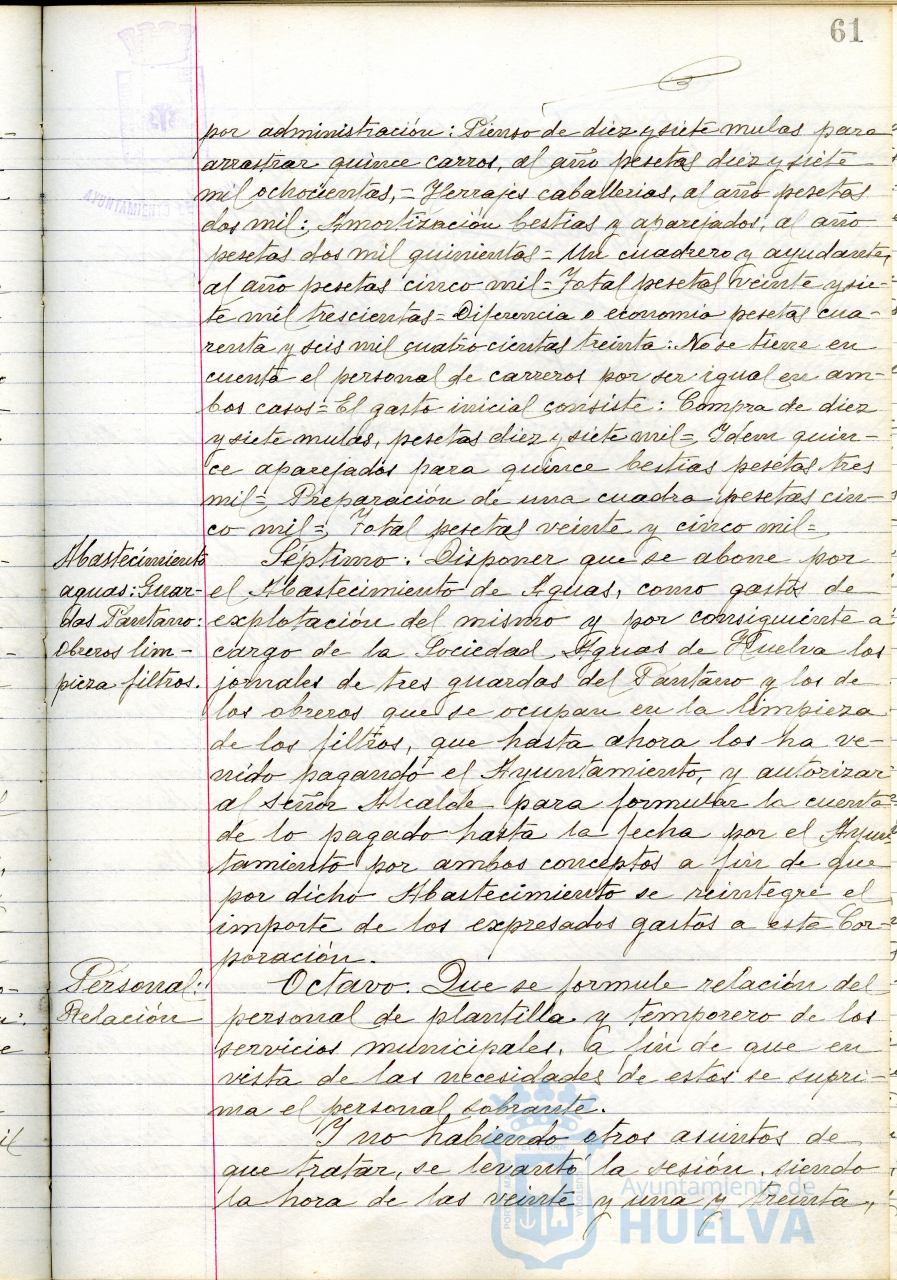 61
por administración: Pienso de diez y siete mulas para
arrastrar quince carros, al año pesetas diez y siete
mil ochocientas,= Herrajes caballerias, al año pesetas
dos mil: Amortización bestias y aparejados, al año
pesetas dos mil quinientas= Un cuadrero y ayudante,
al año pesetas cinco mil= Total pesetas veinte y sie-
te mil trescientas= Diferencia o economia pesetas cua-
renta y seis mil cuatrocientas treinta: No se tiene en
cuenta el personal de carreros por ser igual en am-
bos casos= El gasto inicial consiste: Compra de diez
y siete mulas, pesetas diez y siete mil= Idem quin-
ce aparejados para quince bestias pesetas tres
mil= Preparación de una cuadra pesetas cin-
co mil= Total pesetas veinte y cinco mil=
Abastecimiento
aguas: Guar-
das Pantano:
obreros lim-
pieza filtros.
Séptimo: Disponer que se abone por
el Abastecimiento de Aguas, como gastos de
explotación del mismo y por consiguiente a
cargo de la Sociedad Aguas de Huelva los
jornales de tres guardas del Pantano y los de
los obreros que se ocupan en la limpieza
de los filtros, que hasta ahora los ha ve-
nido pagando el Ayuntamiento, y autorizar
al señor Alcalde para formular la cuenta
de lo pagado hasta la fecha por el Ayun-
tamiento por ambos conceptos a fin de que
por dicho Abastecimiento se reintegre el
importe de los expresados gastos a esta Cor-
poración.
Personal:
Relación
Octavo: Que se formule relación del
personal de plantilla y temporero de los
servicios municipales, a fin de que en
vista de las necesidades de estos se supri-
ma el personal sobrante.
Y no habiendo otros asuntos de
que tratar, se levantó la sesión, siendo
la hora de las veinte y una y treinta,
Ayuntamiento de
HUELVA